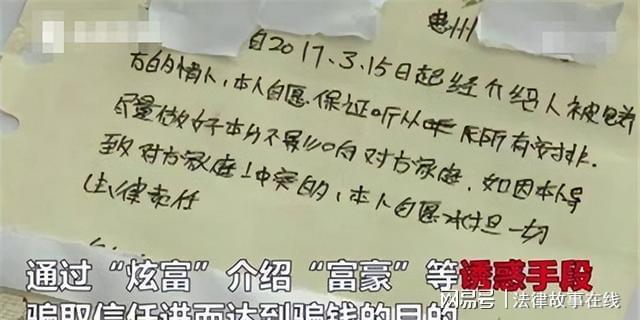 惠州
自2017.3.15日起经介绍人被
方的情人,本人自愿保证听从所有安排.
尽量做好本分不得向对方家庭,如因本人导
致对方家庭冲突的,本人自愿承担一切
法律责任
通过“炫富”介绍“富豪”等诱惑手段
骗取信任进而达到骗钱的目的
搜狐号@法律故事在线